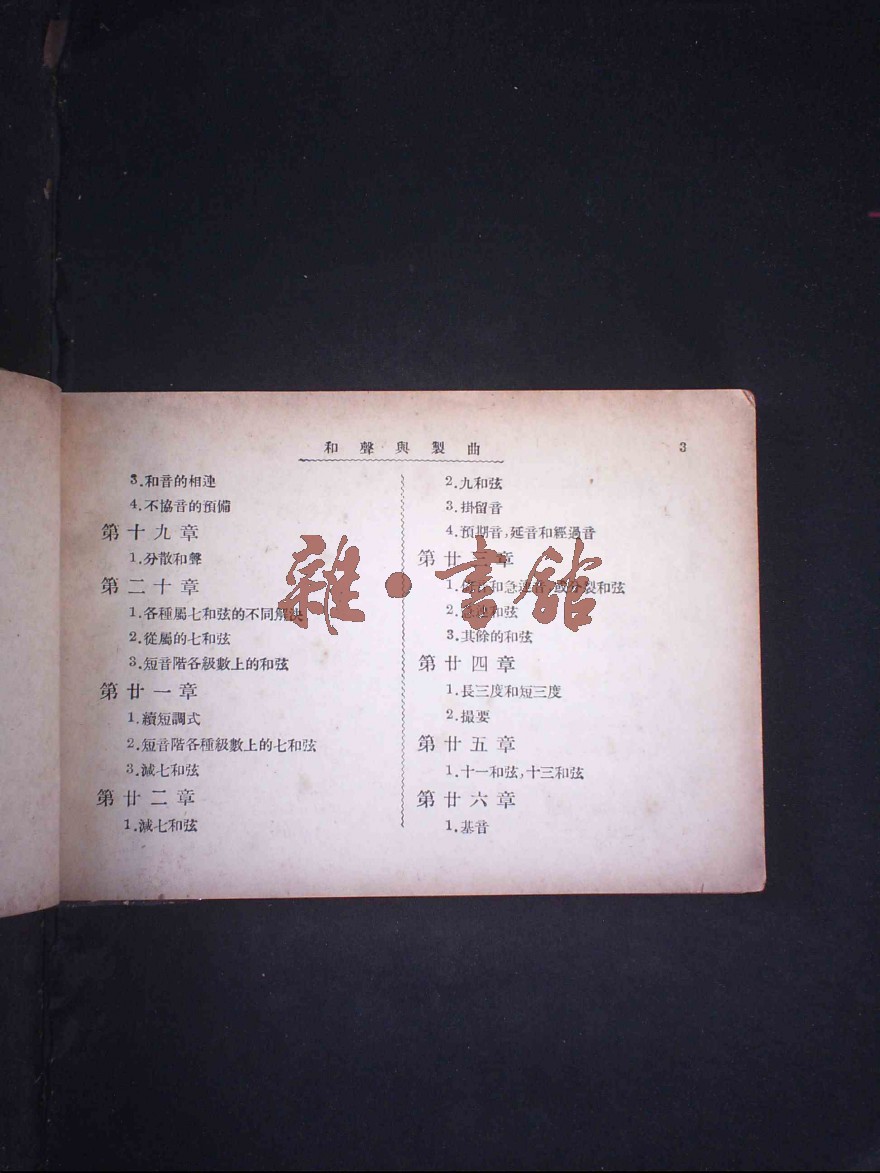 和聲與製曲
3
3.和音的相連
4.不協音的預備
第十九章
1.分散和聲
第二十章
1.各種屬七和弦的不同解決
2.從屬的七和弦
3.短音階各級數上的和弦
第廿一章
1.續短調式
2.短音階各種級數上的七和弦
3.減七和弦
第廿二章
1.減七和弦
2.九和弦
3.掛留音
4.預期音,延音和經過音
第廿三章
1.和急速音,或分裂和弦
2.急速和弦
3.其餘的和弦
第廿四章
1.長三度和短三度
2.撮要
第廿五章
1.十一和弦,十三和弦
第廿六章
1.基音
雜·書館